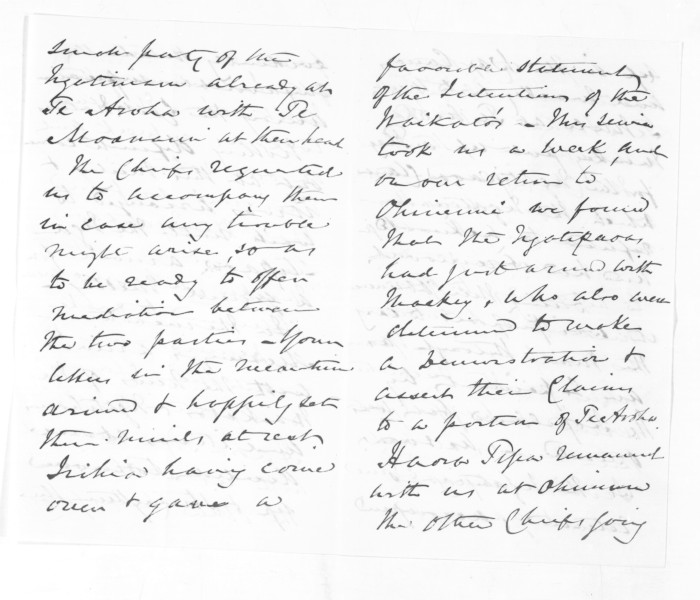 such party of the
Ngatimaru already at
Te Aroha with Te
Moananui at their head
The Chiefs requested
us to accompany them
in case any trouble
might arise, so as
to be ready to offer
mediation between
the two parties - Your
letters in the meantime
arrived & happily set
their minds at rest
having come
over & gave a
favorable statement
of the Intentions of the
Waikato's - This
took us a week, and
on our return to
Ohinemuri we found
that the Ngatipaoas
had just arrived with
Mackey, who also were
determined to make
a Demonstration &
assert their Claims
to a portion of Te Aroha
Haora Tipa remained
with us at Ohinemuri
the other Chiefs going